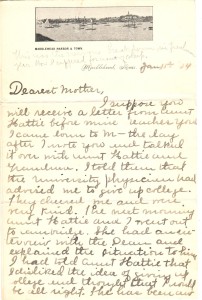 MARBLEHEAD HARBOR & TOWN
Marblehead, Mass.
Dearest Mother,
I suppose you
will receive a letter from Aunt
Hattie before mine reaches you.
I came down to M— the day
after I wrote you and talked
it over with Aunt Hattie and
Grandma. I told them that
the University physician had
advised me to give up college.
They cheered me and were
very kind. The next morning
Aunt Hattie and I went out
to Cambridge. She had an in-
terview with the Dean and
explained the situation to him.
I had told Aunt Hattie that
I disliked the idea of giving up
college and thought that I would
be all right. She has been our